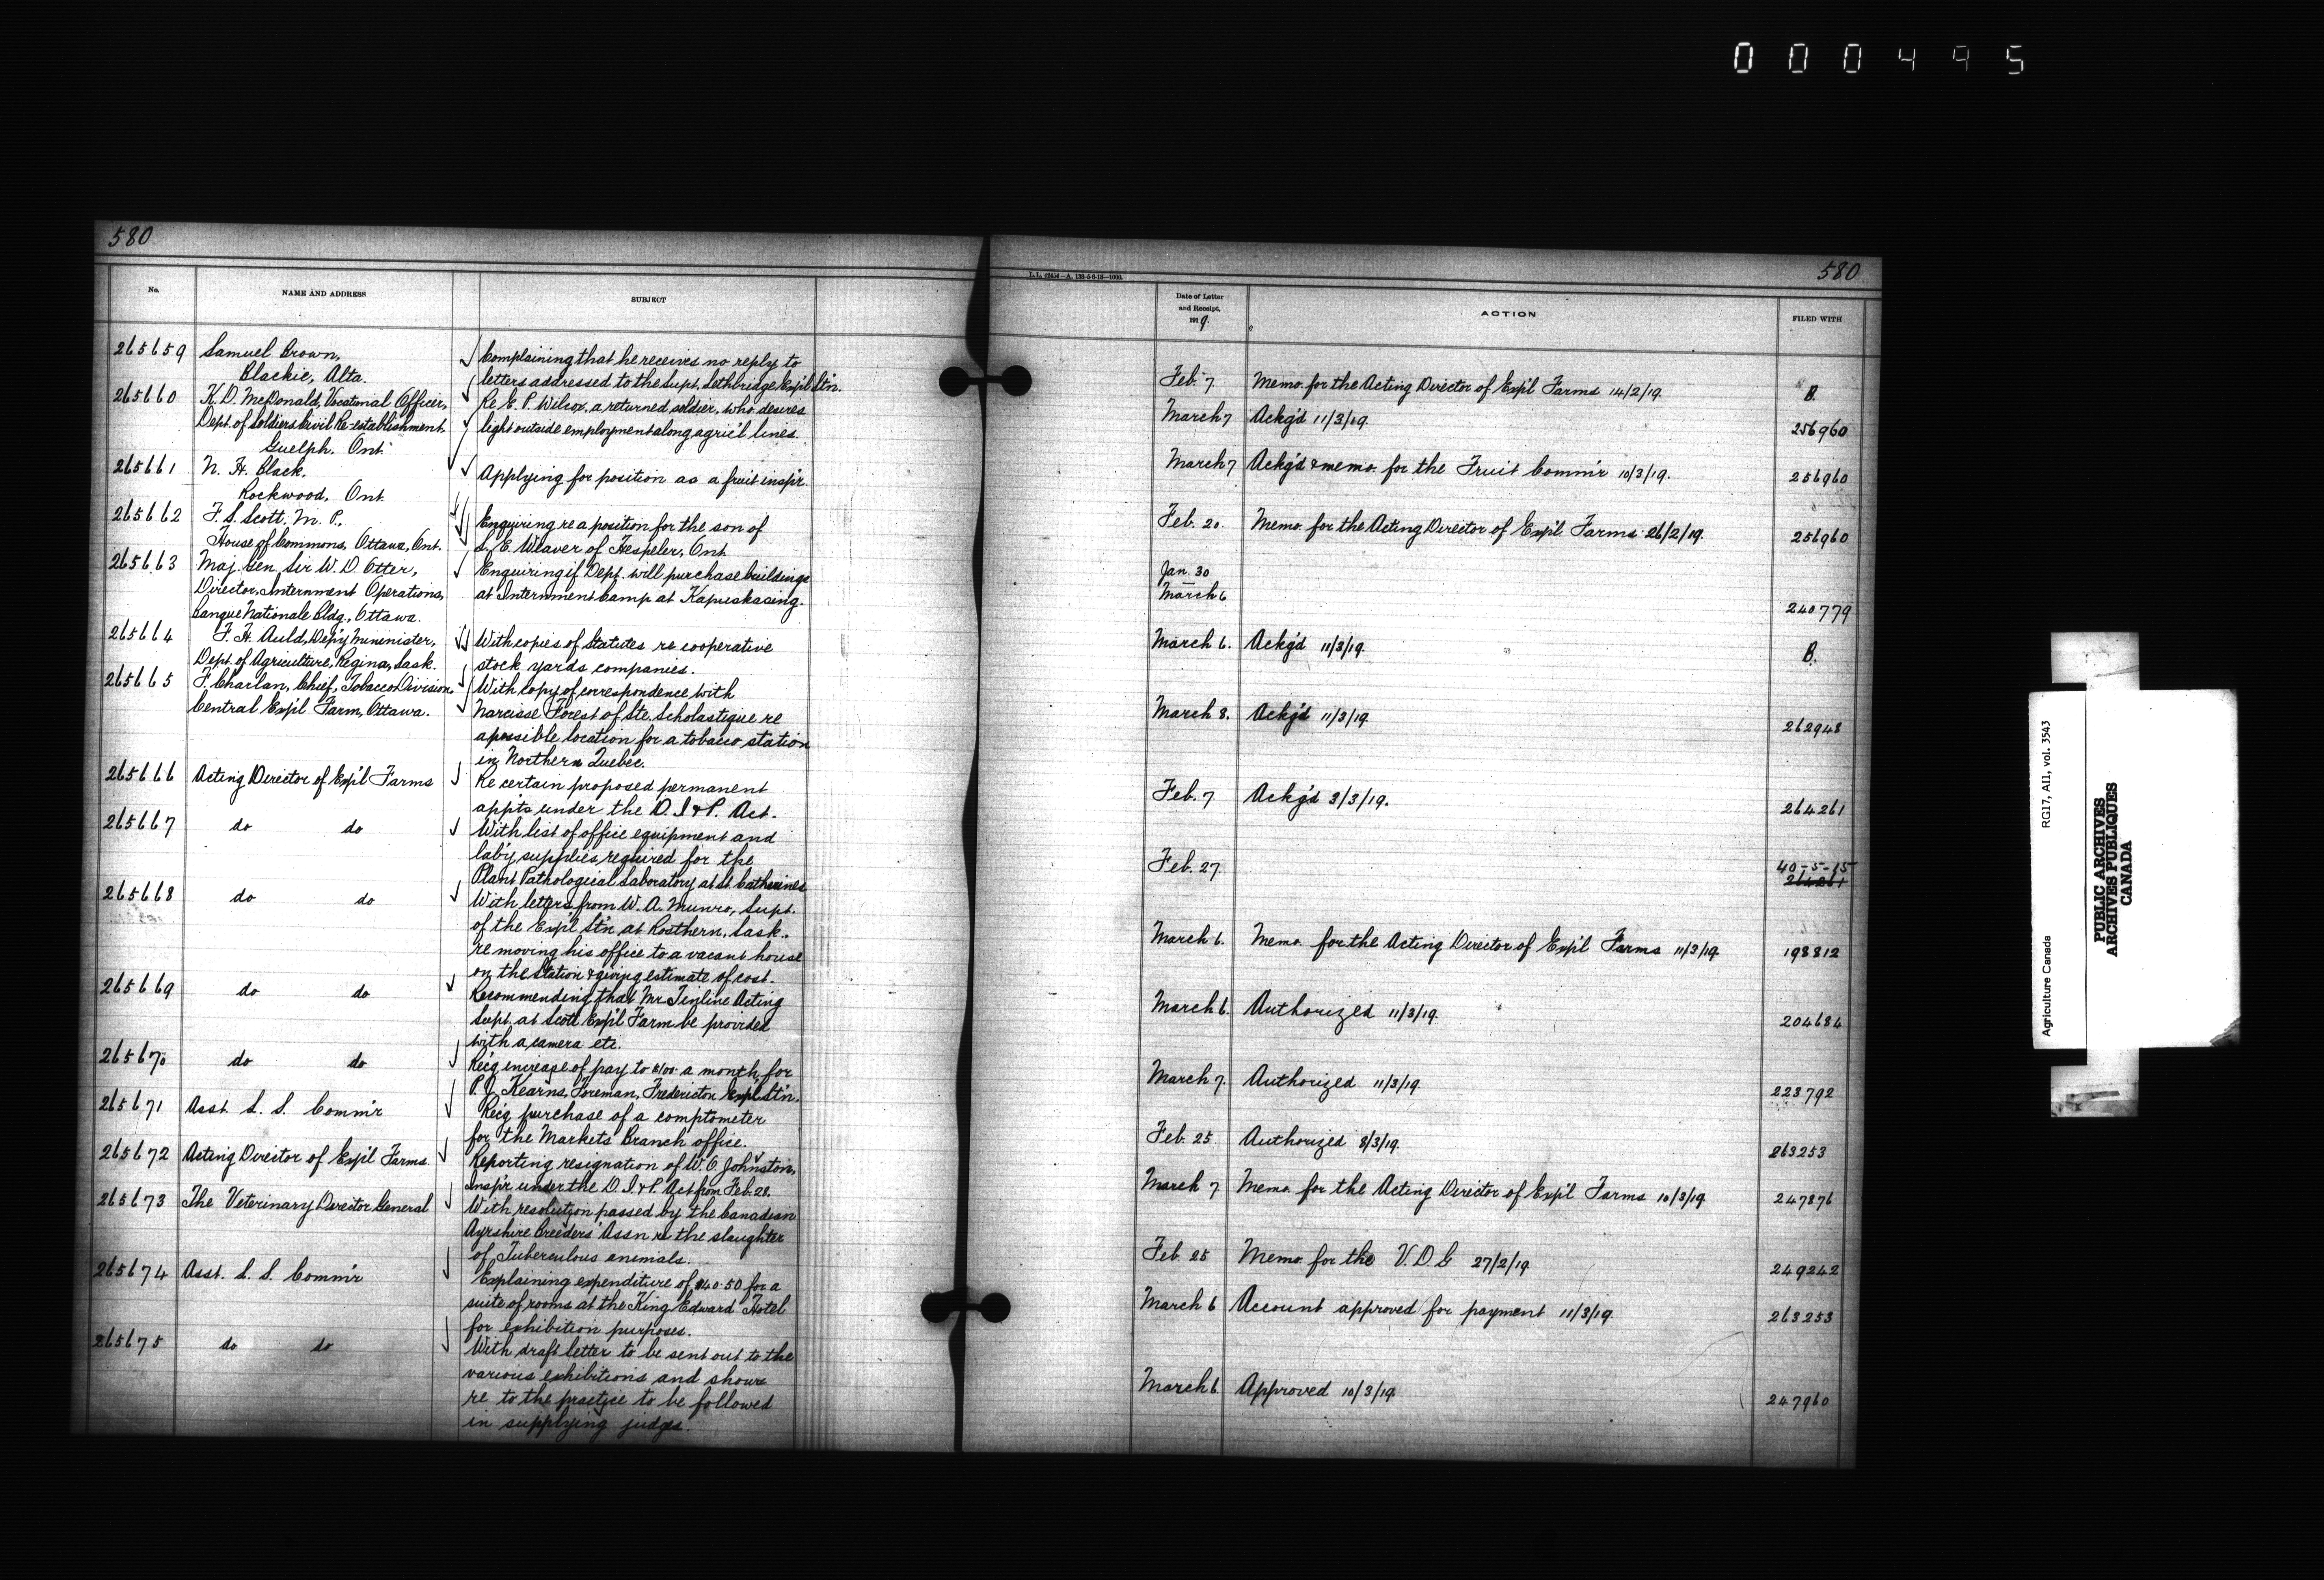 000495
580
No.
NAME AND ADDRESS
SUBJECT
265659 Samuel Brown, Complaining that he receives no reply to
Blackie, Alta. letters addressed to the Supt. Lethbridge Exp'l Stn.
265660 K. D. McDonald, Vocational Officer, Re E. P. Wilcox, a returned soldier, who desires
Dept. of Soldiers Civil Re-establishment, light outside employment along agric'l lines.
Guelph, Ont.
265661 N. H. Black, Applying for position as a fruit insp'r.
Rockwood, Ont.
265662 F. S. Scott, M. P., Enquiring re a position for the son of
House of Commons, Ottawa, Ont. L. E. Weaver of Hespeler, Ont.
265663 Maj. Gen. Sir W. D. Otter, Enquiring if Dept. will purchase buildings
Director, Internment Operations, at Internment Camp at Kapuskasing.
Banque Nationale Bldg., Ottawa.
265664 F. H. Auld, Dep'y Mininister, With copies of Statutes re cooperative
Dept. of Agriculture, Regina, Sask. stock yards companies.
265665 F. Charlan, Chief, Tobacco Division, With copy of correspondence with
Central Exp'l Farm, Ottawa. Narcisse Forest of Ste. Scholastique re
a possible location for a tobacco station
in Northern Quebec.
265666 Acting Director of Exp'l Farms Re certain proposed permanent
app'ts under the D. I. & P. Act.
265667 do do With list of office equipment and
lab'y supplies required for the
Plant Pathological Laboratory at St. Catharines
265668 do do With letters from W. A. Munro, Supt.
of the Exp'l Stn at Rosthern, Sask.
re moving his office to a vacant house
on the Station & giving estimate of cost.
265669 do do Recommending that Mr. Tinline Acting
Supt. at Scott Exp'l Farm be provided
with a camera etc.
265670 do do Rec'g increase of pay to $100 a month for
P. J. Kearns, Foreman, Fredericton Exp'l Stn.
265671 Asst. L. S. Comm'r Rec'g purchase of a comptometer
for the Markets Branch office.
265672 Acting Director of Exp'l Farms Reporting resignation of W. O. Johnston,
Insp'r under the D. I. & P. Act from Feb. 28.
265673 The Veterinary Director General With resolution passed by the Canadian
Ayrshire Breeders' Assn re the slaughter
of Tuberculous animals.
265674 Asst. L. S. Comm'r Explaining expenditure of $40.50 for a
suite of rooms at the King Edward Hotel
for exhibition purposes.
265675 do do With draft letter to be sent out to the
various exhibitions and shows
re to the practice to be followed
in supplying judges.
580
Date of Letter
and Receipt,
1919.
ACTION
FILED WITH
Feb. 7 Memo. for the Acting Director of Exp'l Farms 14/2/19. B.
March 7 Ackg'd 11/3/19. 256960
March 7 Ackg'd & memo. for the Fruit Comm'r 10/3/19. 256960
Feb. 20. Memo. for the Acting Director of Exp'l Farms 26/2/19. 256960
Jan. 30
March 6 240779
March 6. Ackg'd 11/3/19. B.
March 8. Ackg'd 11/3/19. 262948
Feb. 7 Ackg'd 3/3/19. 264261
Feb. 27. 40-5-15
264261
March 6. Memo. for the Acting Director of Exp'l Farms 11/3/19. 198812
March 6. Authorized 11/3/19. 204684
March 7. Authorized 11/3/19. 223792
Feb. 25 Authorized 8/3/19. 263253
March 7 Memo. for the Acting Director of Exp'l Farms 10/3/19. 247876
Feb. 25 Memo. for the V. D. G 27/2/19 249242
March 6 Account approved for payment 11/3/19. 263253
March 6 Approved 10/3/19. 247960
Agriculture Canada RG17, A11, vol. 3543
PUBLIC ARCHIVES
ARCHIVES PUBLIQUES
CANADA